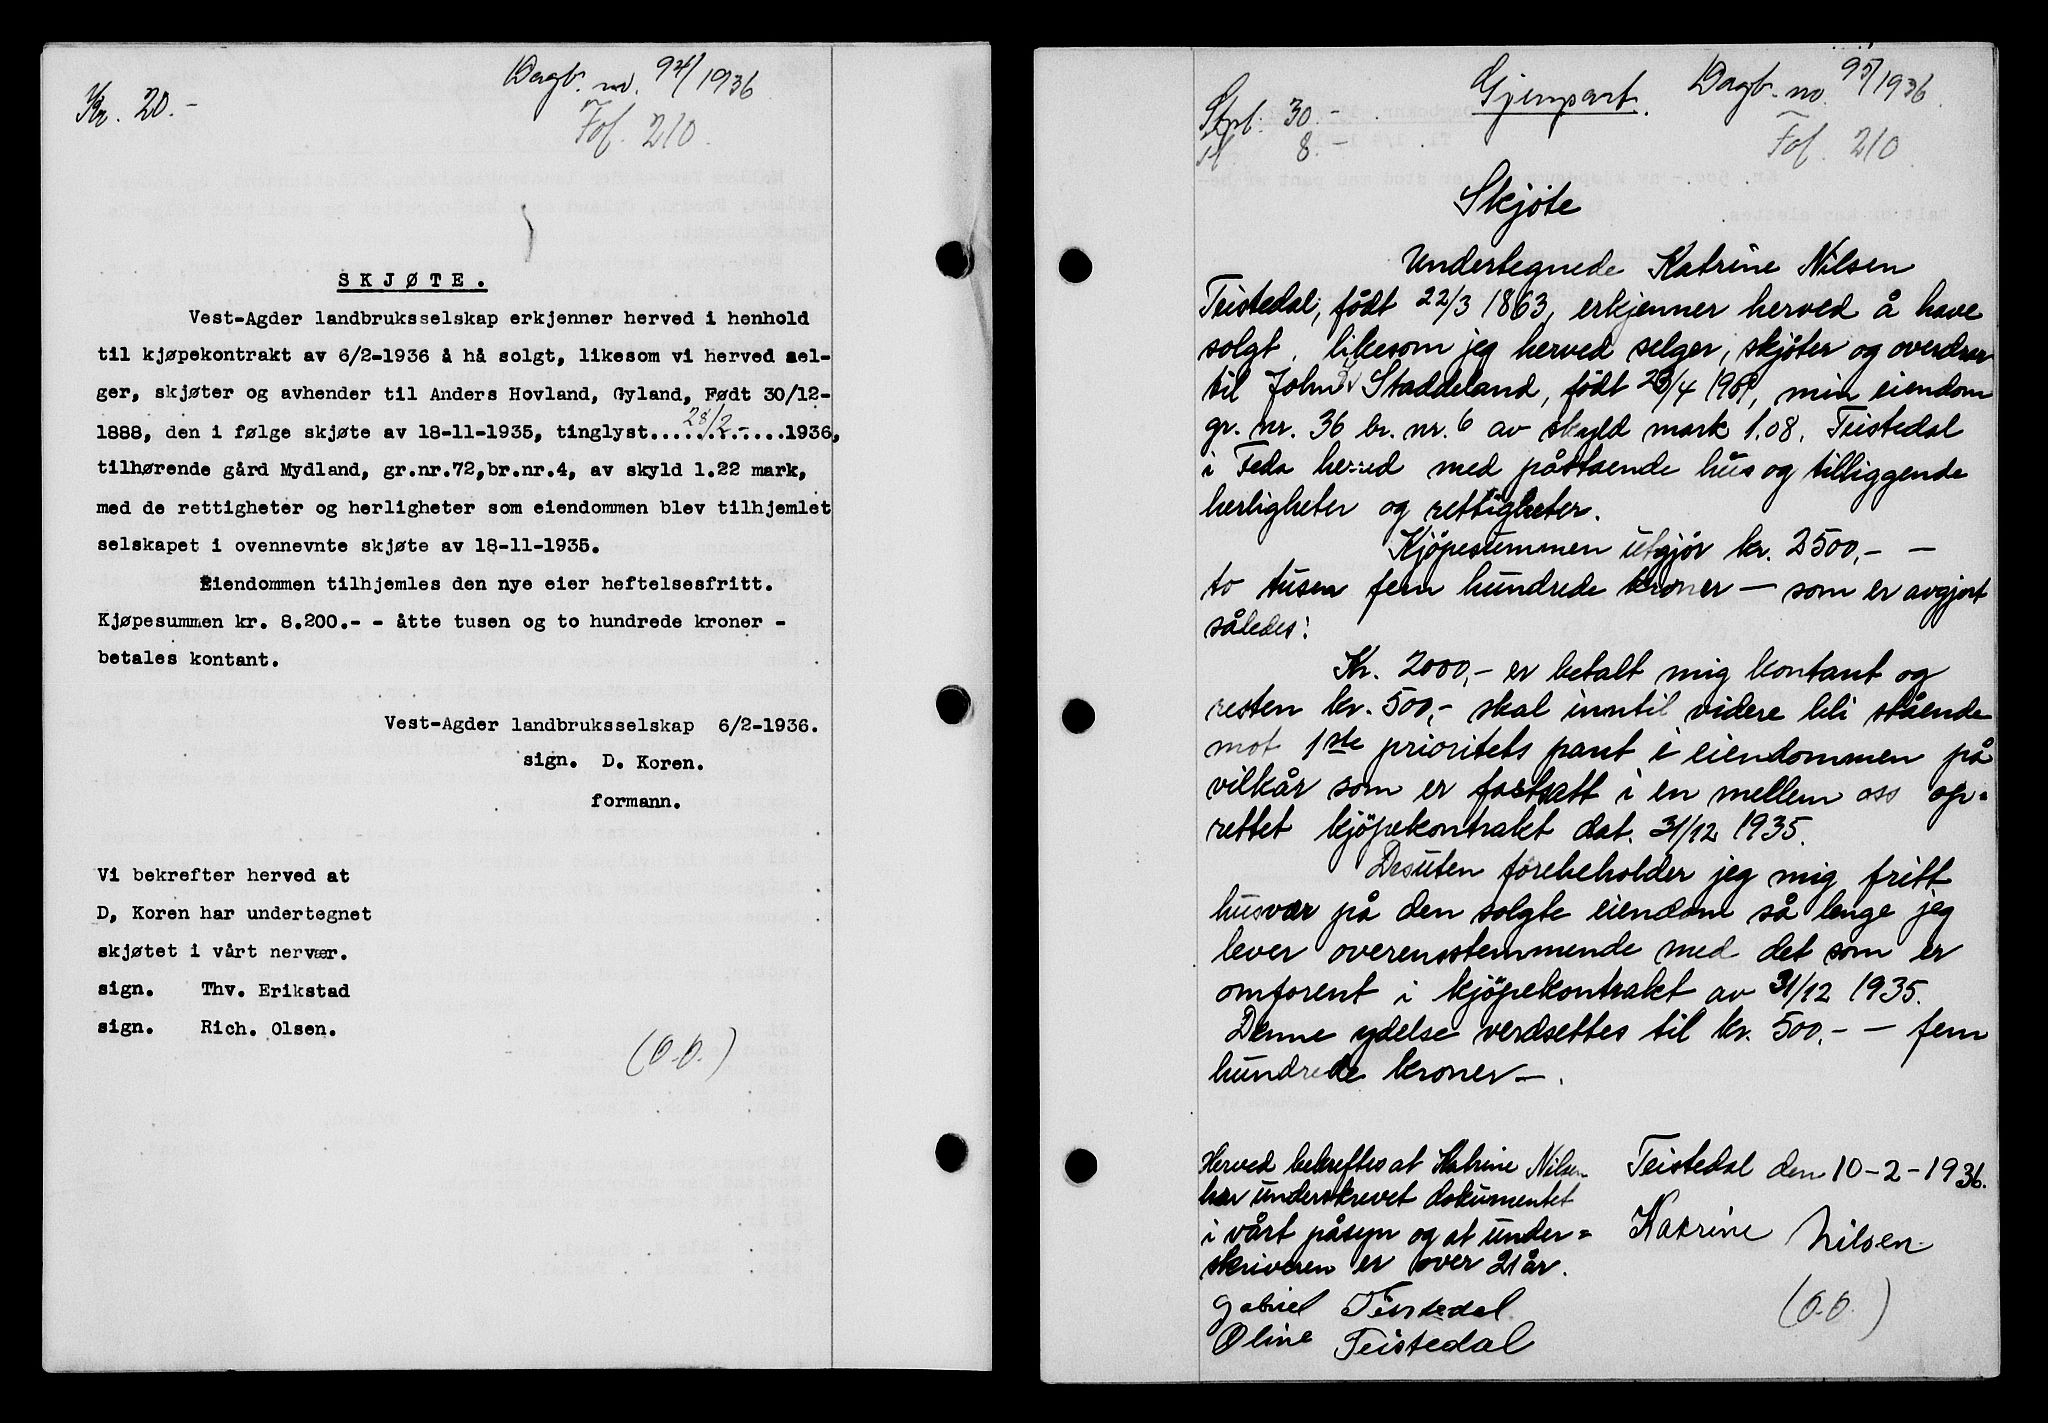 Kr. 20.-
Dagb. no. 94/1936
Fol. 210.
SKJØTE.
Vest-Agder landbruksselskap erkjenner herved i henhold
til kjøpekontrakt av 6/2-1936 å hå solgt, likesom vi herved sel-
ger, skjøter og avhender til Anders Hovland, Gyland, Født 30/12-
1888, den i følge skjøte av 18-11-1935, tinglyst....28/2.-....1936,
tilhørende gård Mydland, gr.nr.72,br.nr.4, av skyld 1.22 mark,
med de rettigheter og herligheter som eiendommen blev tilhjemlet
selskapet i ovennevnte skjøte av 18-11-1935.
Eiendommen tilhjemles den nye eier heftelsesfritt.
Kjøpesummen kr. 8.200.- - åtte tusen og to hundrede kroner -
betales kontant.
Vest-Agder landbruksselskap 6/2-1936.
sign. D. Koren.
formann.
Vi bekrefter herved at
D, Koren har undertegnet
skjøtet i vårt nervær.
sign. Thv. Erikstad
sign. Rich. Olsen.
(O.O.)
Stpl: 30.-
Tl 8.-
Gjenpart.
Dagb. no. 95/1936
Fol. 210
Skjöte
Undertegnede Katrine Nilsen
Teistedal, födt 22/3 1863, erkjenner herved å have
solgt, likesom jeg herved selger, skjöter og overdrar
til John Staddeland, födt 23/4 1901, min eiendom
gr. nr. 36 br. nr. 6 av skyld mark 1.08. Teistedal
i Feda herred med påstaende hus og tilliggende
herligheter og rettigheter.
Kjöpesummen utgjör kr. 2500,- -
to tusen fem hundrede kroner - som er avgjort
således:
Kr. 2000,- er betalt mig kontant og
resten kr. 500,- skal inntil videre bli stående
mot 1ste prioritets pant i eiendommen på
vilkår som er fastsatt i en mellem oss op-
rettet kjöpekontrakt dat. 31/12 1935.
Desuten forebeholder jeg mig fritt
husvær på den solgte eiendom så lenge jeg
lever overensstemmende med det som er
omforent i kjöpekontrakt av 31/12 1935.
Denne ydelse verdsettes til kr. 500.- - fem
hundrede kroner -.
Herved bekreftes at Katrine Nilsen
har underskrevet dokumentet
i vårt påsyn og at under=
skriveren er over 21 år.
Gabriel Teistedal
Oline Teistedal
Teistedal den 10-2-1936.
Katrine Nilsen.
(O.O.)